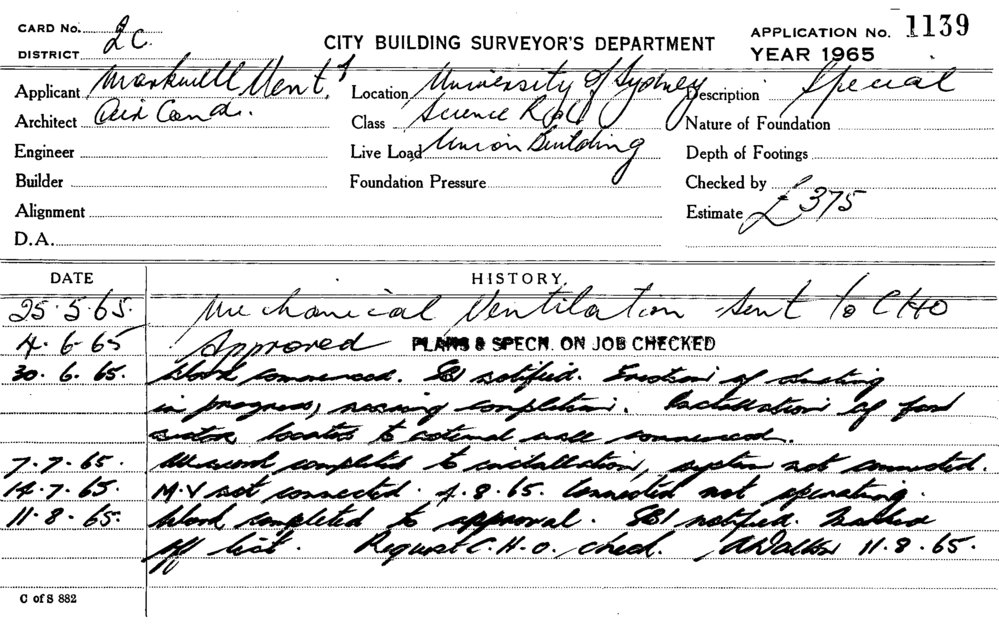 CARD No. 2C.
DISTRICT
CITY BUILDING SURVEYOR'S DEPARTMENT
APPLICATION No. 1139
YEAR 1965
Applicant Markwell Vent. &
Architect Air Cond.
Engineer
Builder
Alignment
D.A.
Location University of Sydney
Class Science Rd
Live Load Union Building
Foundation Pressure
Description Special
Nature of Foundation
Depth of Footings
Checked by
Estimate £375
DATE HISTORY
25.5.65. Mechanical Ventilation sent to CHO
4.6.65 Approved PLANS & SPECN. ON JOB CHECKED
30.6.65. Work commenced. SBI notified. Erection of ducting
in progress, nearing completion. Installation of fan
motor located to external wall commenced.
7.7.65. completed to installation, system not connected.
14.7.65. M.V not connected. 4.8.65. Connected not operating.
11.8.65. Work completed to approval. SBI notified.
off list. Request C.H.O. check. 11.8.65.
C of S 882